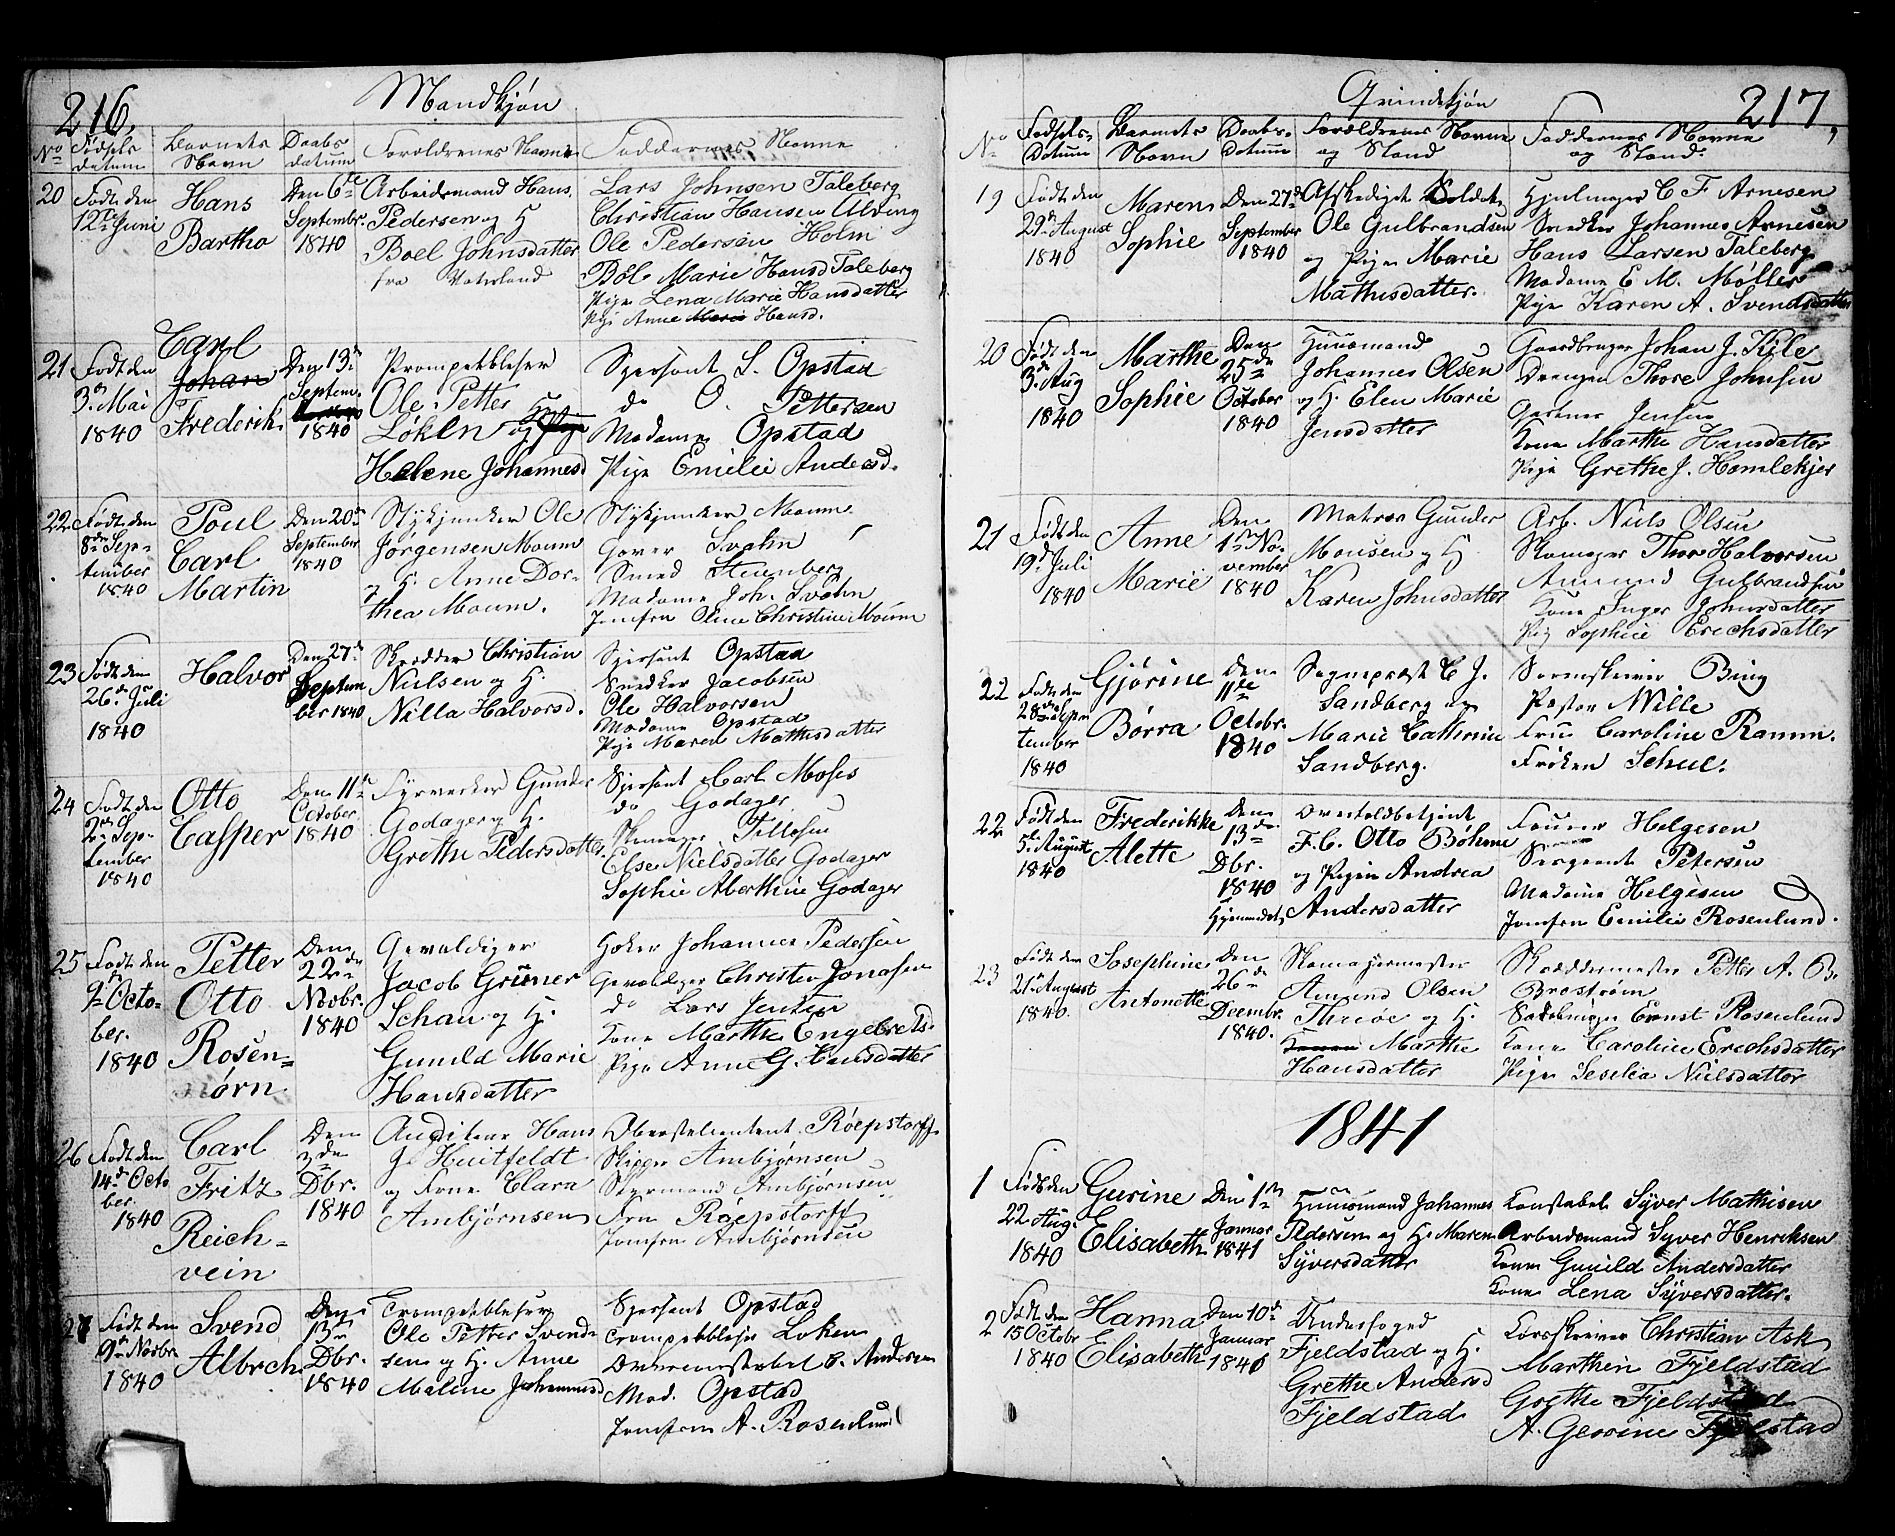 216.
Mandkjøn
No
Fødsels
datum
Barnets
Navn
Daabs
datum
Forældrenes Navne
Faddernes Navne
20
Født den
12te Juni
Hans
Bartho
Den 6te
Septembr.
1840
Arbeidsmand Hans
Pedersen og H.
Boel Johnsdatter
fra Vaterland
Lars Johnsen Taleberg
Christian Hansen Ulving
Ole Pedersen Holm
Böle Marie Hansd Taleberg
Pige Lena Marie Hansdatter
Pige Anne Marie Hansd.
21
Født den
3de Mai
1840
Carl
Johan
Frederik
Den 13de
Septem.
1840
Trompetblæser
Ole Petter
Løken og H.
Helene Johannesd
Sjersant S. Opstad
do O. Pettersen
Madame Opstad
Pige Emilie Andersd.
22
Født den
8de Sep-
tember
1840
Poul
Carl
Martin
Den 20de
September
1840
Stykjunker Ole
Jørgensen Moum
og H. Anne Dor-
thea Moum.
Stykjunker Moum
Gover Svahn
Smed Steenberg
Madame Joh. Svahn
Jomfru Oline Christine Moum
23
Født den
26de Juli
1840
Halvor
Den 27de
Septem
ber 1840
Skrædder Christian
Nielsen og H.
Nilla Halvorsd.
Sjersant Opstad
Snedker Jacobsen
Ole Halvorsen
Madame Opstad
Pige Maren Mathisdatter
24
Født den
2den Sep-
tember
1840
Otto
Casper
Den 11te
October
1840
Fyrverker Gunder
Godager og H.
Grethe Pedersdatter
Sjersant Carl Moses
do Godager
Skomager Tillesen
Else Nielsdatter Godager
Sophie Aberthine Godager
25
Født den
9de Octo-
ber.
1840
Petter
Otto
Rosen-
ørn
Den
22de
Novbr.
1840
Gevaldiger
Jacob Grüner
Schau og H.
Gunild Marie
Hansdatter
Høker Johannes Pedersen
Gevaldiger Christen Jonasen
do Lars Jensen
Kone Marthe Engebretsd.
Pige Anne G. Hansdatter
26
Født den
14de Octo
ber.
1840
Carl
Fritz
Reich-
vein
Den
2den
Dbr.
1840
Auditeur Hans
G. Huitfeldt
og Frue Clara
Ambjørnsen
Oberstleutent. Røepstorff
Skipper Ambjørnsen
Styrmand Ambjørnsen
Fru Roepstorff
Jomfru Ambjørnsen
27
Født den
9de Novbr.
1840
Svend
Albrch
Den
13de
Dbr.
1840
Trompetblæser
Ole Petter Svend-
sen og H. Anne
Maline Johannesd
Sjersant Opstad
Trompetblæser Løken
Overconstabel C. Andersen
Mad. Opstad
Jomfru A. Rosenlund
217,
Qvindekjøn
No
Fødsels-
Datum
Barnets
Navn
Daabs-
Datum
Forældrenes Navne
og Stand
Faddernes Navne
og Stand.
19
Født den
29de August
1840
Maren
Sophie
Den 27de
September
1840
Afskediget Soldat
Ole Gulbrandsen
og Pige Marie
Mathisdatter.
Hjulmager C F Arnesen
Snedker Johannes Arnesen
Hans Larsen Taleberg
Madame E M. Møller
Pige Karen A. Svendsdatter
20
Født den
3de Aug
1840
Marthe
Sophie
Den
25de
October
1840
Huusmand
Johannes Olsen
og H. Elen Marie
Jensdatter
Gaardbruger Johan J. Kile
Drengen Thore Johnsen
Gartner Jensen
Kone Marthe Hansdatter
Pige Grethe J. Homlekjer
21
Født den
19de Juli
1840
Anne
Marie
Den
1ste No-
vember
1840
Matros Gunder
Monsen og H.
Karen Johnsdatter
Arb. Niels Olsen
Skomager Thor Halvorsen
Amund Gulbrandsen
Kone Inger Johnsdatter
Pig Sophie Erichsdatter
22
Født den
28de Sep-
tember
1840
Gjørine
Børra
Den
11te
Octobr.
1840
Sognepræst C. J.
Sandberg og
Marie Cathrine
Sandberg.
Sorenskriver Bing
Pastor Wille
Frue Caroline Ramm.
Frøken Schul.
22
Født den
5te August
1840
Frederikke
Alette
Den
13de
Dbr.
1840
Hjemmedøbt
Overtoldbetjent
F. C. Otto Böhme
og Pigen Andrea
Andersdatter
Fourer Helgesen
Sergeant Petersen
Madame Helgesen
Jomfru Emilie Rosenlund.
23
Født den
21de August
1840
Josephine
Antonette
Den
26de
Decembr.
1840.
Skomagermester
Amund Olsen
Throe og H.
Marthe
Hansdatter
Skræddermester Petter A. B.
Broström
Sadelmager Ernst Rosenlund
Kone Caroline Erichsdatter
Pige Seselia Nielsdatter
1841
1
Født den
22 Aug.
1840
Gurine
Elisabeth
Den 1ste
Januar
1841
Huusmand Johannes
Pedersen og H. Maren
Syversdatter
Konstabel Syver Mathisen
Arbeidsmand Syver Henriksen
Kone Gunild Andersdatter
Kone Lena Syversdatter.
2
Født den
15 Octobr
1840
Hanna
Elisabeth
Den 10de
Januar
1840
Underfoged
Fjeldstad og H.
Grethe Andersd
Fjeldstad
Torskriver Christian Ask
Marthin Fjeldstad
Grethe Fjeldstad
A. Gerine Fjelstad